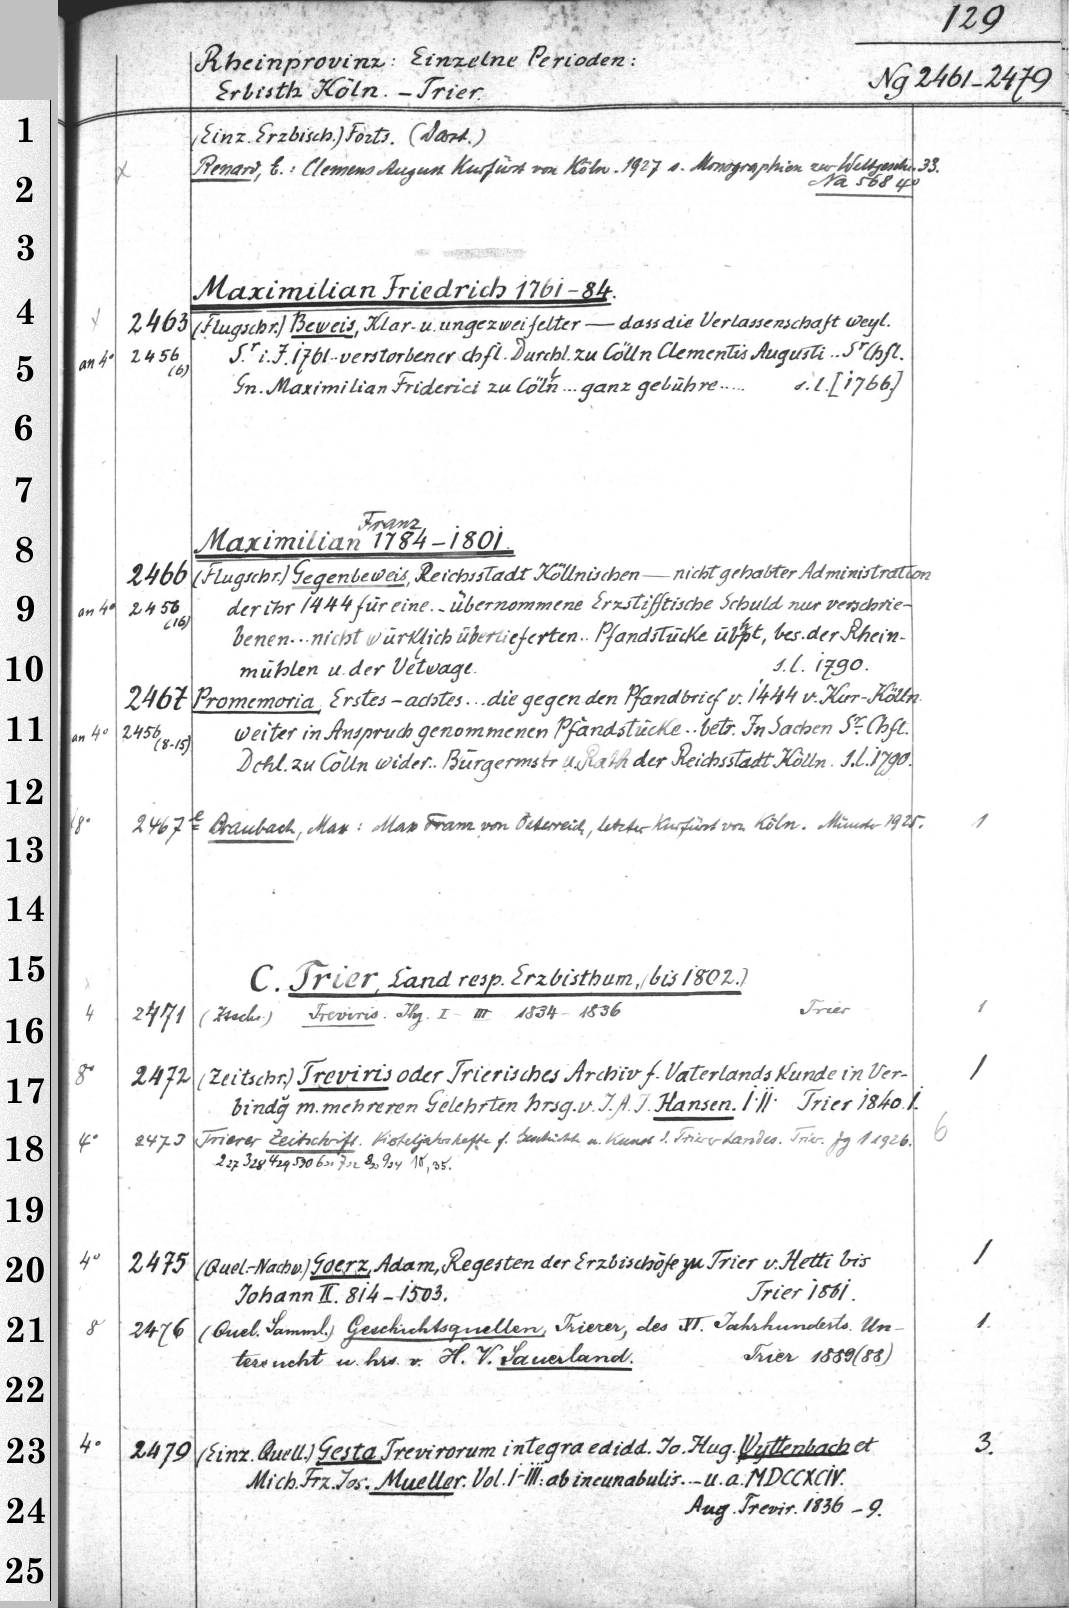 129
Rheinprovinz: Einzelne Perioden:
Erbisth Köln. – Trier.
Ng 2461–2479
1
(Einz. Erzbisch.) Forts. (Dort.)
x Renard, E.: Clemens August Kurfürst von Köln. 1927 s. Monographien zur Weltgesch. 33.
2
Na 568 4°
3
Maximilian Friedrich 1761–84.
4
x 2463 (Flugschr.) Beweis, Klar- u. ungezweifelter — dass die Verlassenschaft weyl.
5
an 4° 2456 (6) S.r i. J. 1761 verstorbener chfl. Durchl. zu Cölln Clementis Augusti .. Sr Chfl.
Gn. Maximilian Friderici zu Cöln ... ganz gebühre ..... s. l. [1766]
6
7
Maximilian Franz 1784–1801.
8
2466 (Flugschr.) Gegenbeweis, Reichsstadt Köllnischen — nicht gehabter Administration
9
an 4° 2456 (16) der ihr 1444 für eine .. übernommene Erzstifftische Schuld nur verschrie-
benen ... nicht würklich überlieferten .. Pfandstücke übhpt, bes. der Rhein-
10
mühlen u. der Vetwage. s. l. 1790.
2467 Promemoria, Erstes – achtes ... die gegen den Pfandbrief v. 1444 v. Kur-Kölln
11
an 4° 2456 (8-15) weiter in Anspruch genommenen Pfandstücke .. betr. In Sachen Sr. Chfl.
Dchl. zu Cölln wider .. Bürgermstr u. Rath der Reichsstadt Kölln. s. l. 1790.
12
8° 2467e Braubach, Max: Max Franz von Österreich, letzter Kurfürst von Köln. Münster 1925. 1
13
14
15
C. Trier, Land resp. Erzbisthum, (bis 1802.)
16
4 2471 (Ztschr.) Treviris. Jhg. I – III 1834 – 1836 Trier 1
17
8° 2472 (Zeitschr.) Treviris oder Trierisches Archiv f. Vaterlands Kunde in Ver- 1
bindg̃ m. mehreren Gelehrten hrsg. v. J. A. J. Hansen. I. II. Trier 1840 f.
18
4° 2473 Trierer Zeitschrift. Vierteljahrshefte f. Geschichte u. Kunst d. Trierer Landes. Trier. Jg 1 1926. 6
2 27 3 28 4 29 5 30 6 31 7 32 8 33 9 34 10, 35.
19
20
4° 2475 (Quel.-Nachw.) Goerz, Adam, Regesten der Erzbischöfe zu Trier v. Hetti bis 1
Johann II. 814 – 1503. Trier 1861.
21
8 2476 (Quel. Samml.) Geschichtsquellen, Trierer, des XI. Jahrhunderts. Un- 1.
tersucht u. hrs. v. H. V. Sauerland. Trier 1889 (88)
22
23
4° 2479 (Einz. Quell.) Gesta Trevirorum integra edidd. Jo. Hug. Wyttenbach et 3.
Mich. Frz. Jos. Mueller. Vol. I–III: ab incunabulis. – u. a. MDCCXCIV.
24
Aug. Trevir. 1836 – 9.
25